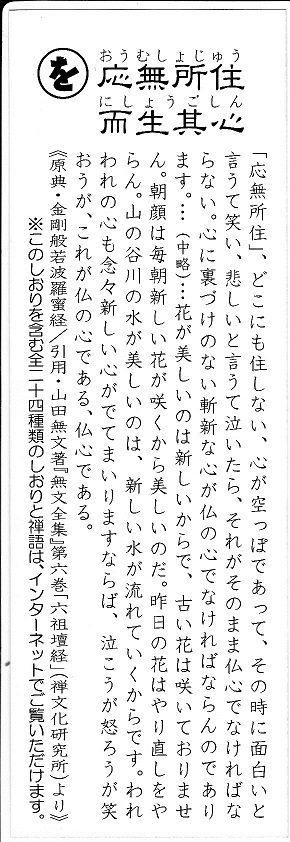 を
おうむしょじゅう
応無所住
にしょうごしん
而生其心
「応無所住」、どこにも住しない、心が空っぽであって、その時に面白いと
言うて笑い、悲しいと言うて泣いたら、それがそのまま仏心でなければな
らない。心に裏づけのない斬新な心が仏の心でなければならんのであり
ます。…（中略）…花が美しいのは新しいからで、古い花は咲いておりませ
ん。朝顔は毎朝新しい花が咲くから美しいのだ。昨日の花はやり直しをや
らん。山の谷川の水が美しいのは、新しい水が流れていくからです。われ
われの心も念々新しい心がでてまいりますならば、泣こうが怒ろうが笑
おうが、これが仏の心である、仏心である。
《原典・金剛般若波羅蜜経／引用・山田無文著『無文全集』第六巻「六祖壇経」（禅文化研究所）より》
※このしおりを含む全二十四種類のしおりと禅語は、インターネットでご覧いただけます。